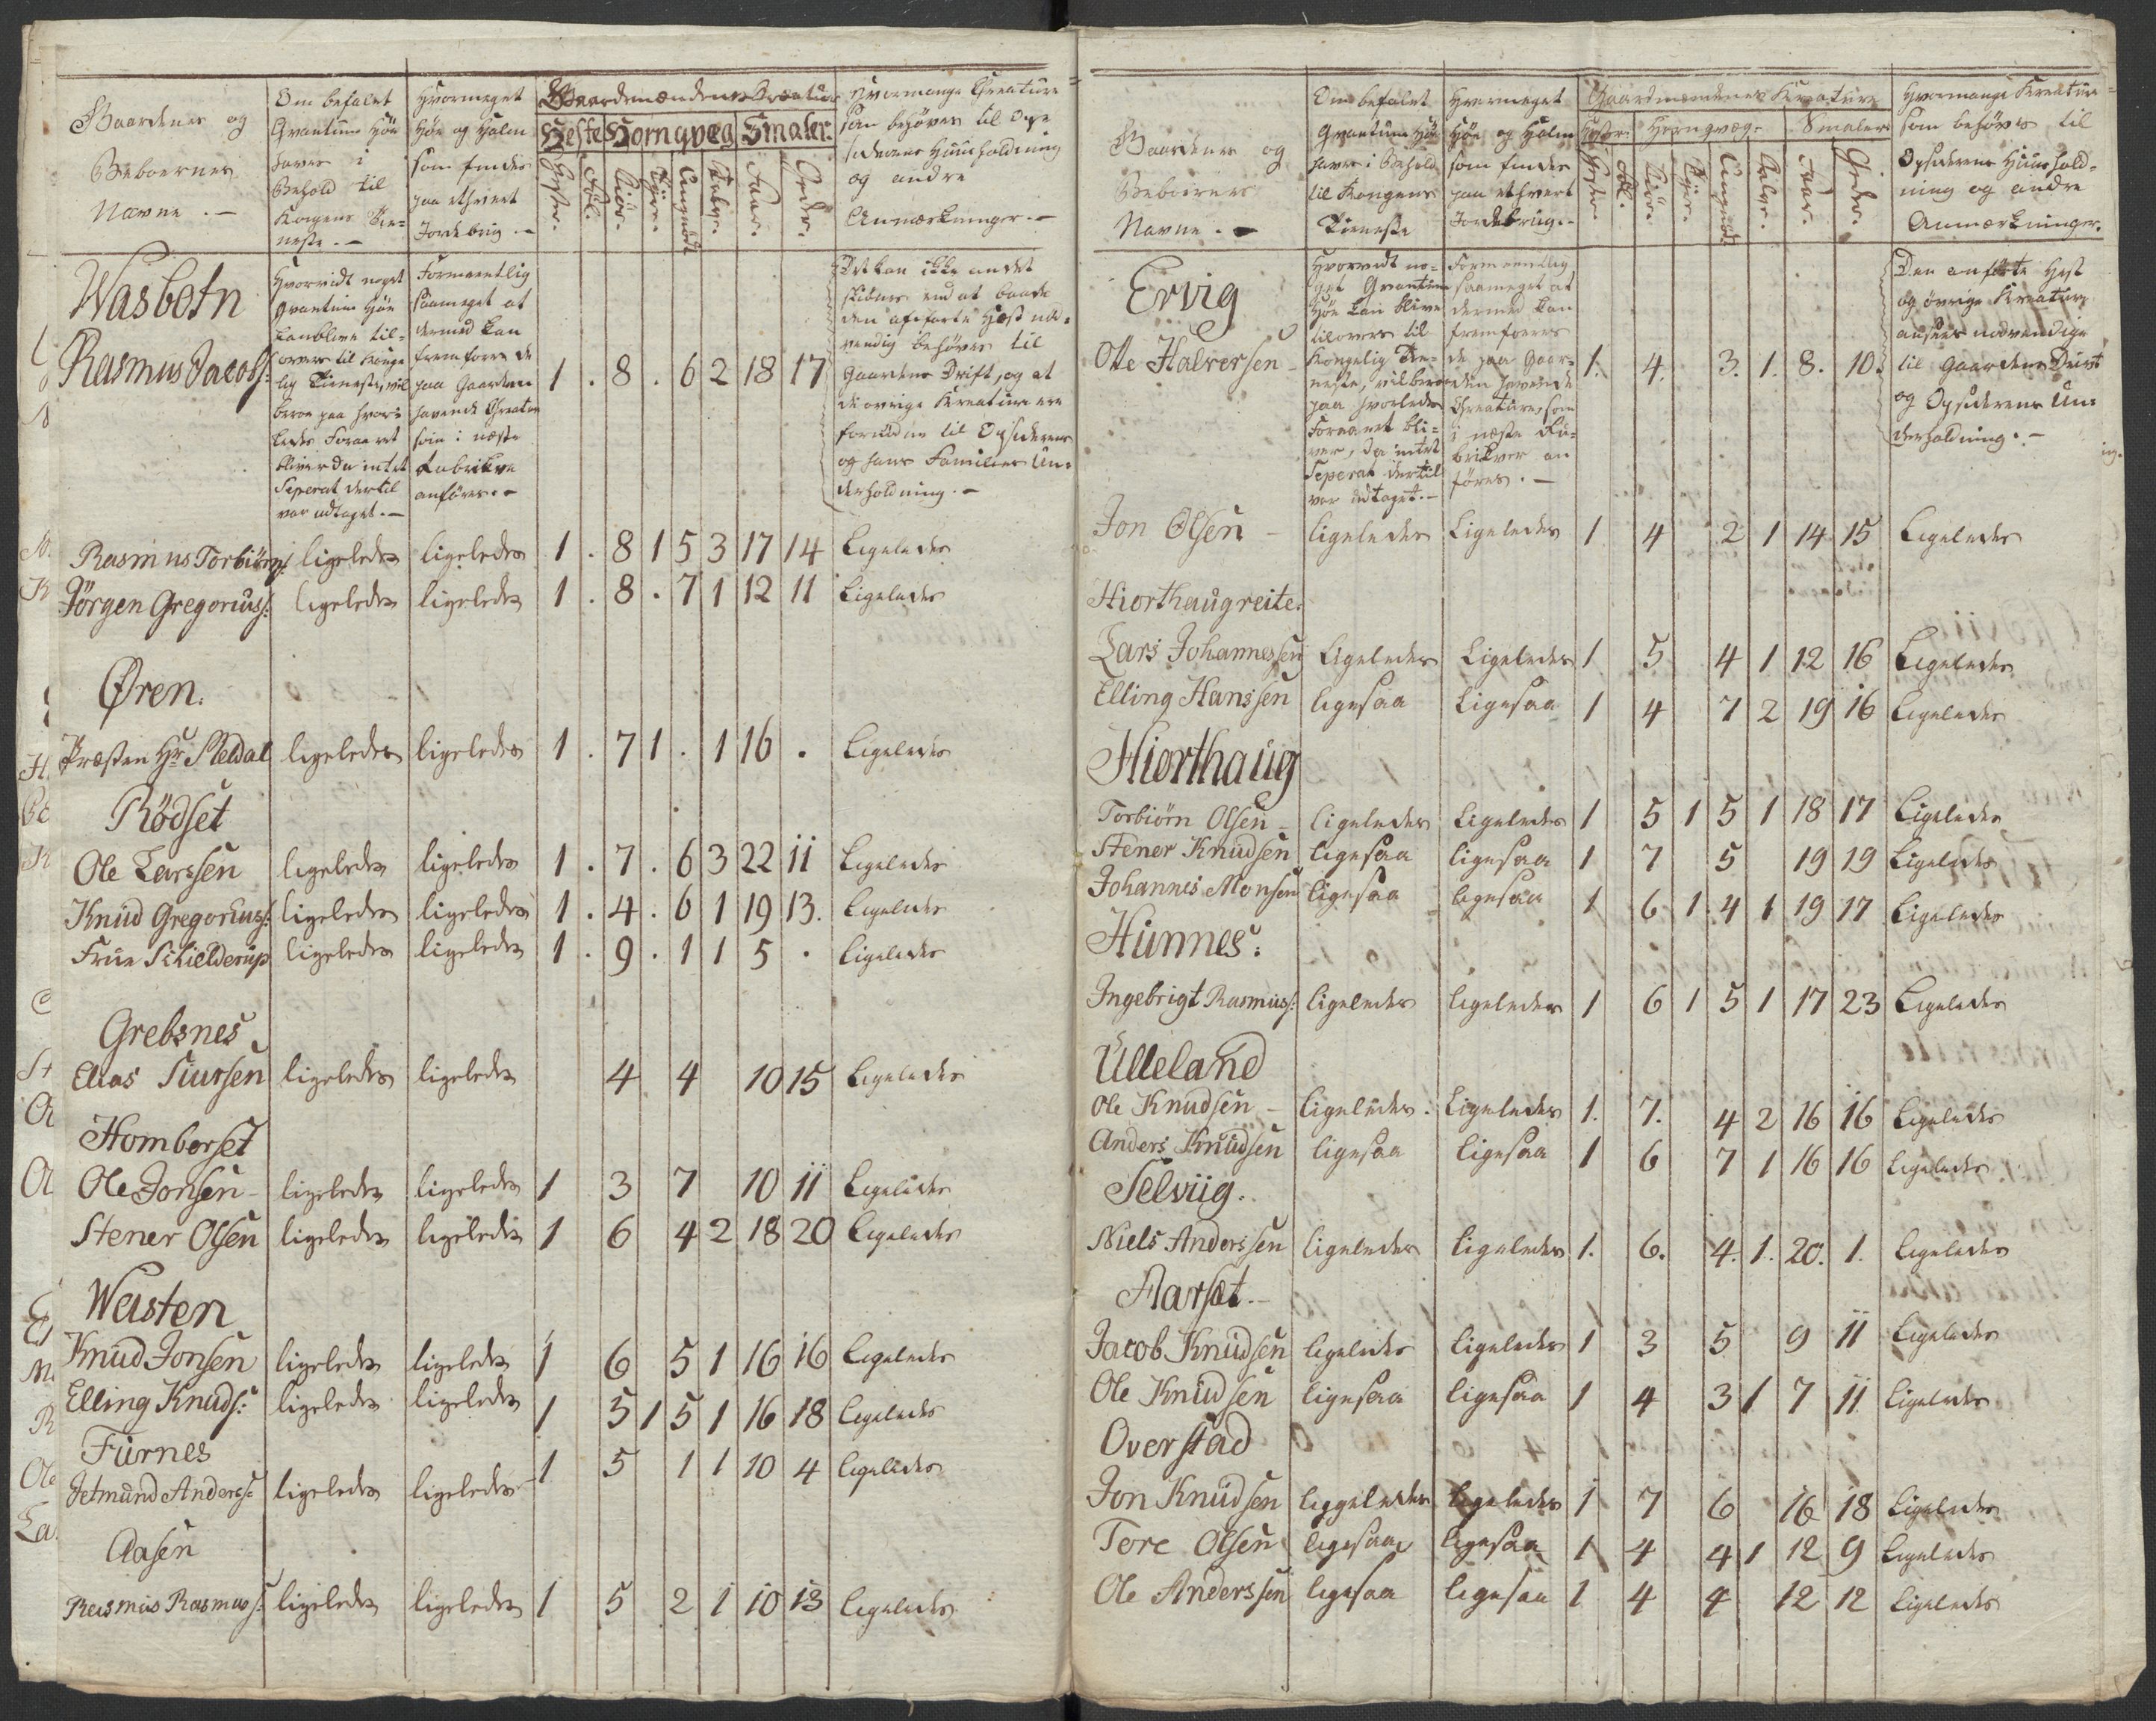 Gaardenes og
Beboernes
Navne. -
Om befalet
Qvantum Höe
haves i
Behold til
Kongens Tie=
neste. -
Hvormeget
Höe og Halm
som findes
paa ethvert
Jordebrug -
Gaardmændenes Creature
Heste Hornqvæg Smaler:
Hester. Föl. Kiör. Tÿre. Ungnöd Kalve. Faar. Geder.
Hvormange Creature
som behöves til Opsi
ddernes Huusholdning
og andre
Anmærkninger. -
Wasbotn
Rasmus Jacobs: 1 . 8 . 6 2 18 17
Hvorvidt noget
Qvantum Höe
kan blive til=
overs til Konge
lig Tieneste, vil
beroe paa hvor=
ledes Foraaret
bliver da intet
Seperat dertil
var udtaget. -
Formeentlig
saameget at
dermed kan
fremfores de
paa Gaarden
havende Creature
som i næste
Rubrikve
anföres. -
Det kan ikke andet
skiönnes end at baade
den anförte Hest nöd=
vendig behöves til
Gaardens Drift, og at
de övrige Kreature ere
fornödne til Opsidderens
og hans Families Un=
derholdning. -
Rasmus Torbiörns: ligeledes ligeledes 1 . 8 1 5 3 17 14 Ligeledes
Jörgen Gregorius: ligeledes ligeledes 1 . 8 . 7 1 12 11 Ligeledes
Øren.
Præsten Hr Meldal ligeledes ligeledes 1 . 7 1 . 1 16 . Ligeledes
Rödset
Ole Larssen ligeledes ligeledes 1 . 7 . 6 3 22 11 Ligeledes
Knud Gregorius: ligeledes ligeledes 1 . 4 . 6 1 19 13. Ligeledes
Frue Schielderup ligeledes ligeledes 1 . 9 . 1 1 5 . Ligeledes
Grebsnes
Elias Siursen ligeledes ligeledes 4 4 10 15 Ligeledes
Homborset
Ole Jonsen - ligeledes ligeledes 1 3 7 10 11 Ligeledes
Stener Olsen ligeledes ligeledes 1 6 4 2 18 20 Ligeledes
Weisten
Knud Jonsen ligeledes ligeledes 1 6 5 1 16 16 Ligeledes
Elling Knuds: ligeledes ligeledes 1 5 1 5 1 16 18 Ligeledes
Furnes
Jetmund Anderss: ligeledes ligeledes 1 5 1 1 10 4 Ligeledes
Aasen
Rasmus Rasmus: ligeledes ligeledes 1 5 2 1 10 13 Ligeledes
Gaardenes og
Beboernes
Navne. -
Om befalet
Qvantum Höe
haves i Behold
til Kongens
Tieneste
Hvormeget
Höe og Halm
som findes
paa ethvert
Jordebrug. -
Gaardmændenes Kreature
Hester: Hornqvæg. Smaler
Hester. Föl. Kiör. Tÿre. Ungnöd Kalve. Faar. Geder.
Hvormange Kreature
som behöves til
Opsidderens Huushold=
ning og andre
Anmærkninger.
Ervig
Otte Halversen - 1. 4. 3. 1. 8. 10.
Hvorvidt no=
get Qvantum
Höe kan blive
tilovers til
Kongelig Tie=
neste, vil beroe
paa hvorledes
Foraaret bli=
ver, da intet
Seperat dertil
var udtaget. -
Formeentlig
saameget at
dermed kan
fremfoeres
de paa Gaar=
den havende
Creature, som
i næste Ru=
brikver an
föres. -
Den anförte Hest
og övrige Kreature
ansees nødvendige
til Gaardens Drivt
og Opsidderens Un=
derholdning. -
Jon Olsen - Ligeledes Ligeledes 1 4 2 1 14 15 Ligeledes
Hiorthaugreite.
Lars Johannessen Ligeledes Ligeledes 1 5 4 1 12 16 Ligeledes
Elling Hanssen ligesaa Ligesaa 1 4 7 2 19 16 Ligeledes
Hiorthaug
Torbiörn Olsen - ligeledes Ligeledes 1 5 1 5 1 18 17 Ligeledes
Stener Knudsen ligesaa ligesaa 1 7 5 19 19 Ligeledes
Johannes Monsen ligesaa ligesaa 1 6 1 4 1 19 17 Ligeledes
Hunnes:
Ingebrigt Rasmus: ligeledes ligeledes 1 6 1 5 1 17 23 Ligeledes
Ulleland
Ole Knudsen - ligeledes. Ligeledes 1. 7. 4 2 16 16 Ligeledes
Anders Knudsen ligesaa ligesaa 1 6 7 1 16 16 Ligeledes
Selviig.
Niels Anderssen ligeledes ligeledes 1. 6. 4. 1. 20. 1. Ligeledes
Aarset. -
Jacob Knudsen ligeledes ligeledes 1 3 5 9 11 Ligeledes
Ole Knudsen ligesaa ligesaa 1 4 3 1 7 11 Ligeledes
Overstad
Jon Knudsen liggeledes ligeledes 1 7 6 16 18 Ligeledes
Tore Olsen ligesaa ligesaa 1 4 4 1 12 9 Ligeledes
Ole Anderssen ligesaa ligesaa 1 4 4 12 12 Ligeledes